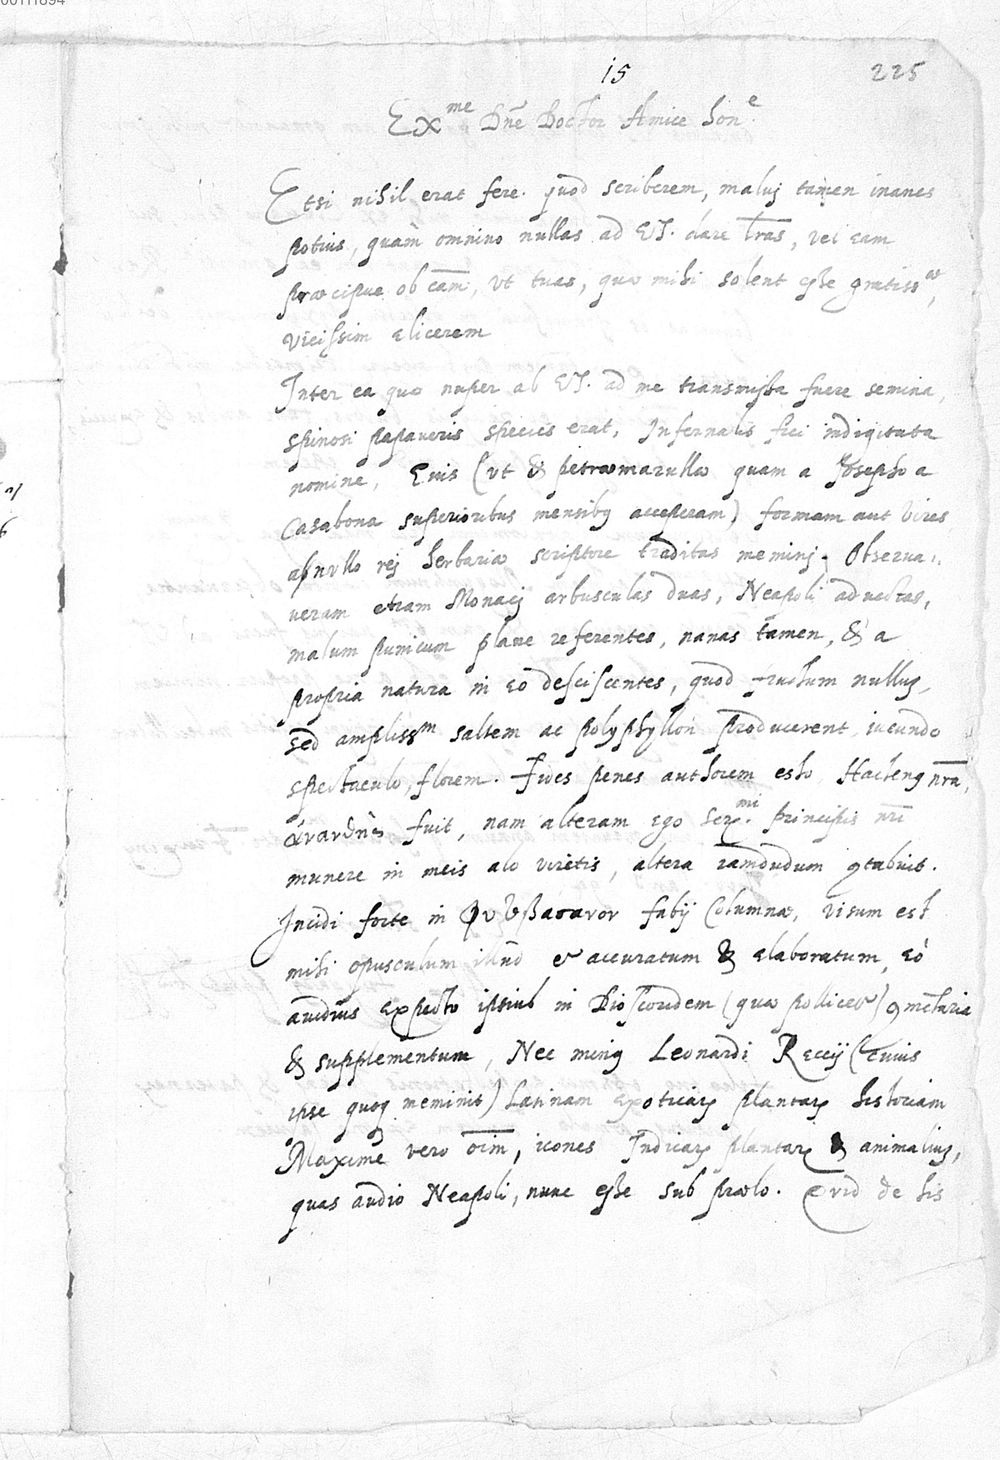 00111894
15
225
Ex^me Dñe Doctor Amice hon^e.
Etsi nihil erat fere. quod scriberem, maluj tamen inanes
potius, quàm omnino nullas ad ET. dare l̃ras, vel eam
præcipue ob cãm, vt tuas, quæ mihi solent eße gratiss^æ,
vicißim elicerem
Inter ea quæ nuper ab ET. ad me transmißa fuere semina,
spinosi papaveris species erat, Infernalis fici indigitata
nomine, Cuis (vt & petræmarullæ quam a Josepho a
Casabona superioribus mensibq acceperam) formam aut vires
a nullo rej herbariæ scriptore traditas meminj. Observa,,
veram etiam Monacj arbusculas duas, Neapoli advectas,
malum punicum plane referentes, nanas tamen, & a
propria natura in eo desciscentes, quod fructum nullum,
sed ampliss^m saltem ac polyphyllon producerent iucundo
spectaculo, florem. Fides penes authorem esto Hactenq nr̃a,
fuit, nam alteram ego Ser^mi. principis nr̃i
munere in meis alo viretis, altera iamdudum ꝯtabuit.
Incidi forte in φυτοβασανον Fabij Columnæ, visum est
mihi opusculum illud & accuratum & elaboratum, eò
avidius expecto ipsius in Dioscoridem (quæ pollicet) ꝯmẽtaria
& supplementum, Nec minq Leonardi Reccij (Cuius
ipse quoq meminit) Latinam exoticarꝝ plantarꝝ historiam
Maxime vero oĩm, icones Indicarꝝ plantarꝝ & animaliũ,
quas audio Neapoli, nunc eße sub prælo. Qvid de his